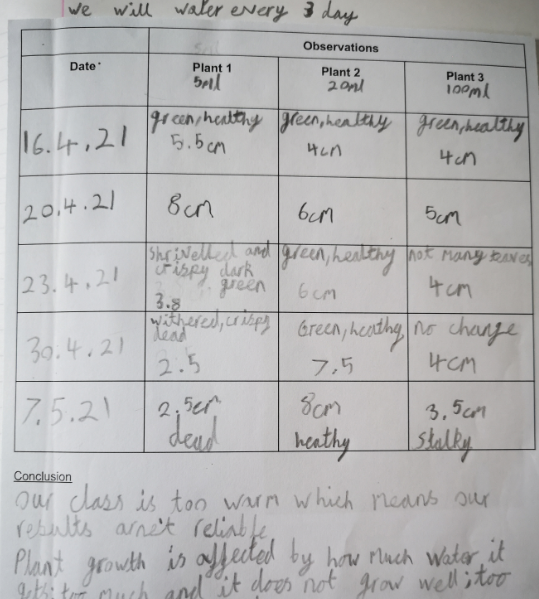 we will water every 3 day
Observations
Date
Plant 1
5ml
Plant 2
20ml
Plant 3
100ml
16.4.21
green, healthy
5.5cm
green, healthy
4cm
green, healthy
4cm
20.4.21
8cm
6cm
5cm
23.4.21
shrivelled and
crispy dark
green
3.8
green, healthy
6cm
not many leaves
4cm
30.4.21
withered, crispy
dead
2.5
Green, heathy
7,5
no change
4cm
7.5.21
2,5cm
dead
8cm
heathy
3,5cm
Stalky
Conclusion
Our class is too warm which means our
results arne't reliable
Plant growth is affected by how much water it
gets: too much and it does not grow well; too